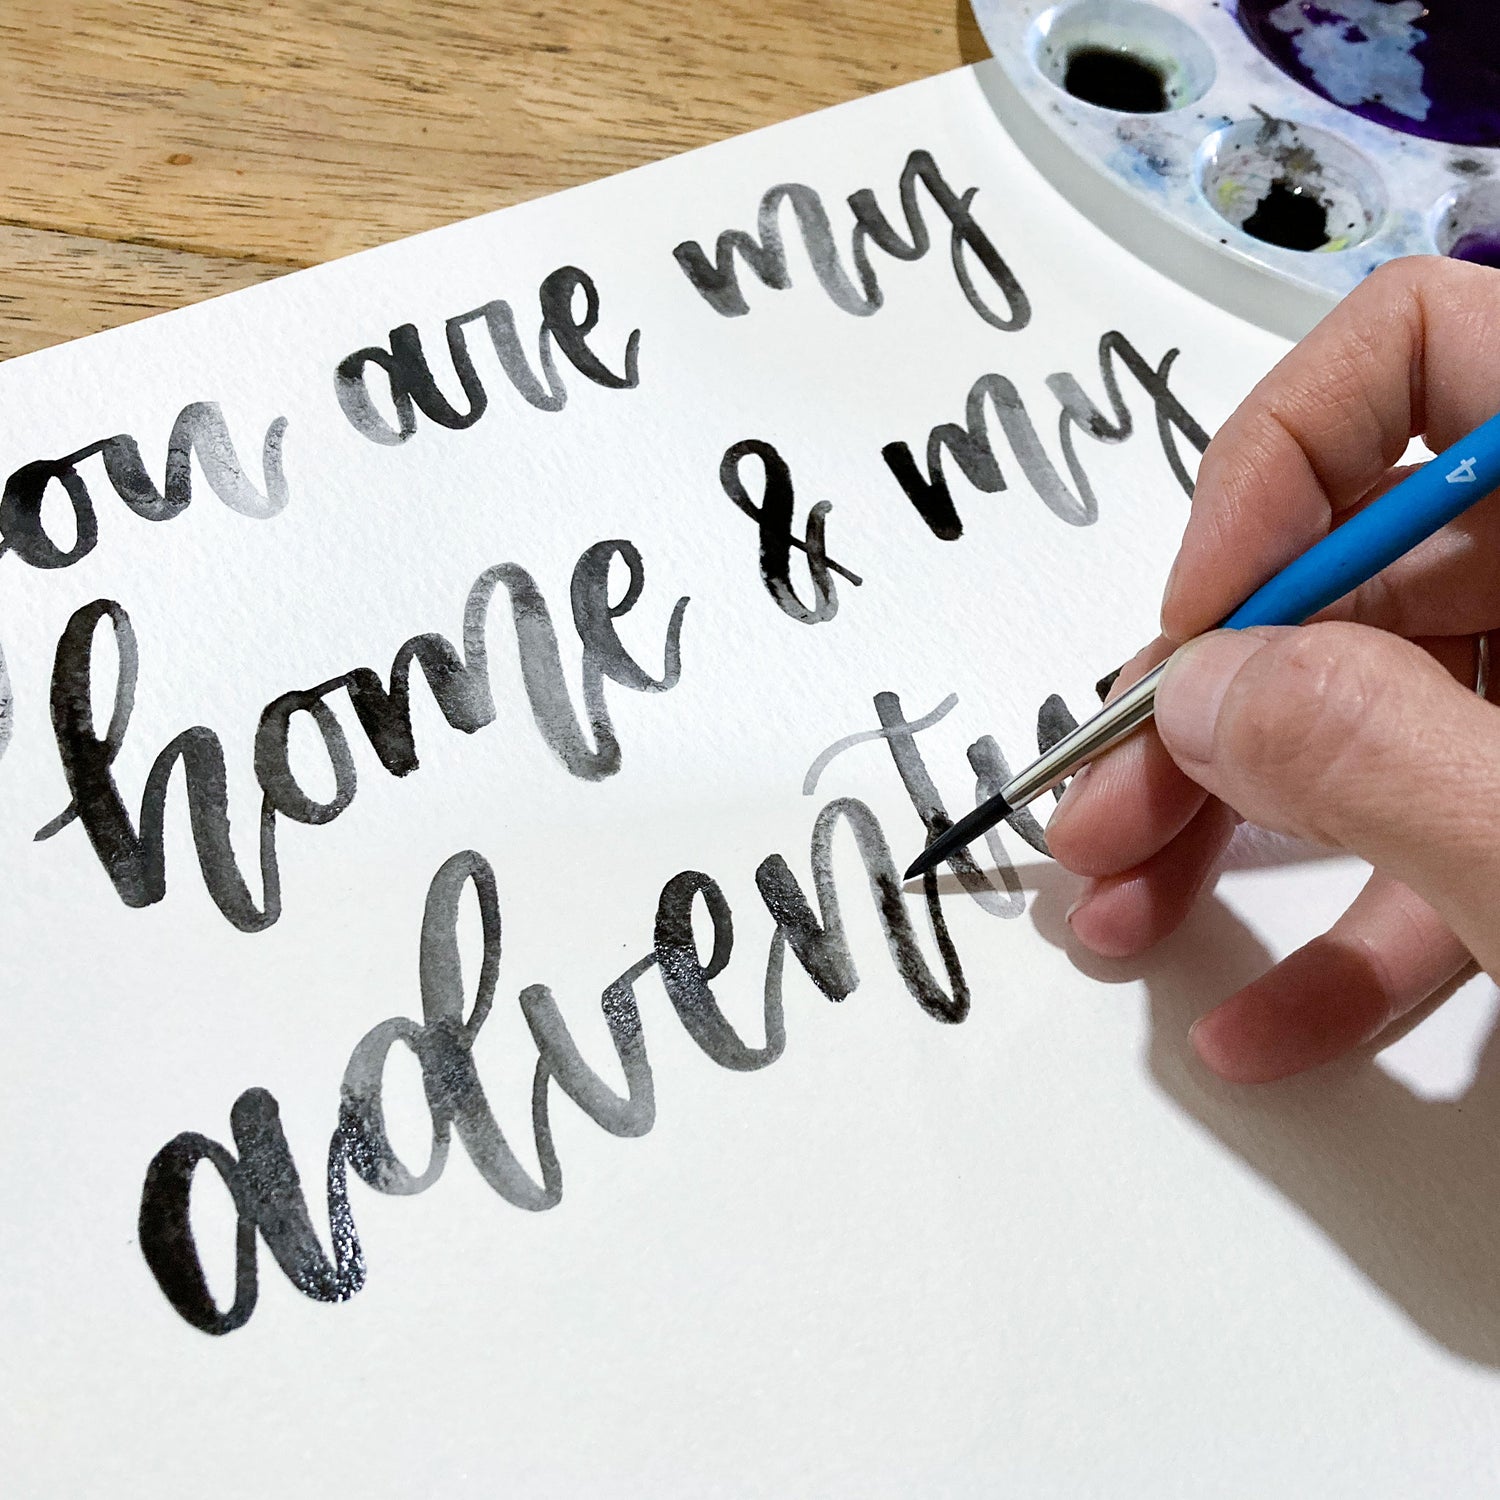 ou are my
home & my
adventu
4